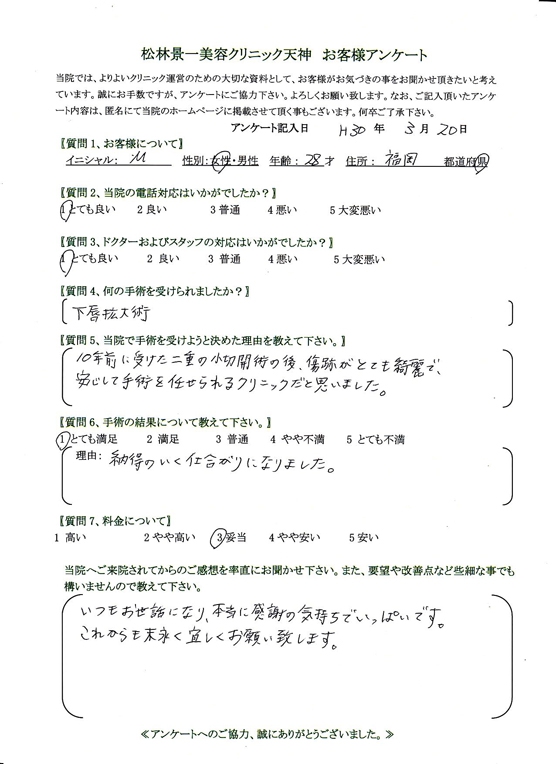 松林景一美容クリニック天神　お客様アンケート
当院では、よりよいクリニック運営のための大切な資料として、お客様がお気づきの事をお聞かせ頂きたいと考え
ています。誠にお手数ですが、アンケートにご協力下さい。よろしくお願い致します。なお、ご記入頂いたアンケ
ート内容は、匿名にて当院のホームページに掲載させて頂く事もございます。何卒ご了承下さい。
アンケート記入日　H30 年　3 月 20 日
【質問 1、お客様について】
イニシャル：　M　性別：女性・男性　年齢：28 才　住所：　福岡　都道府県
【質問 2、当院の電話対応はいかがでしたか？】
1 とても良い　2 良い　3 普通　4 悪い　5 大変悪い
【質問 3、ドクターおよびスタッフの対応はいかがでしたか？】
1 とても良い　2 良い　3 普通　4 悪い　5 大変悪い
【質問 4、何の手術を受けられましたか？】
下唇拡大術
【質問 5、当院で手術を受けようと決めた理由を教えて下さい。】
10年前に受けた二重の小切開術の後、傷跡がとても綺麗で、
安心して手術を任せられるクリニックだと思いました。
【質問 6、手術の結果について教えて下さい。】
1 とても満足　2 満足　3 普通　4 やや不満　5 とても不満
理由：　納得のいく仕上がりになりました。
【質問 7、料金について】
1 高い　2 やや高い　3 妥当　4 やや安い　5 安い
当院へご来院されてからのご感想を率直にお聞かせ下さい。また、要望や改善点など些細な事でも
構いませんので教えて下さい。
いつもお世話になり、本当に感謝の気持ちでいっぱいです。
これからも末永く宜しくお願い致します。
≪アンケートへのご協力、誠にありがとうございました。≫